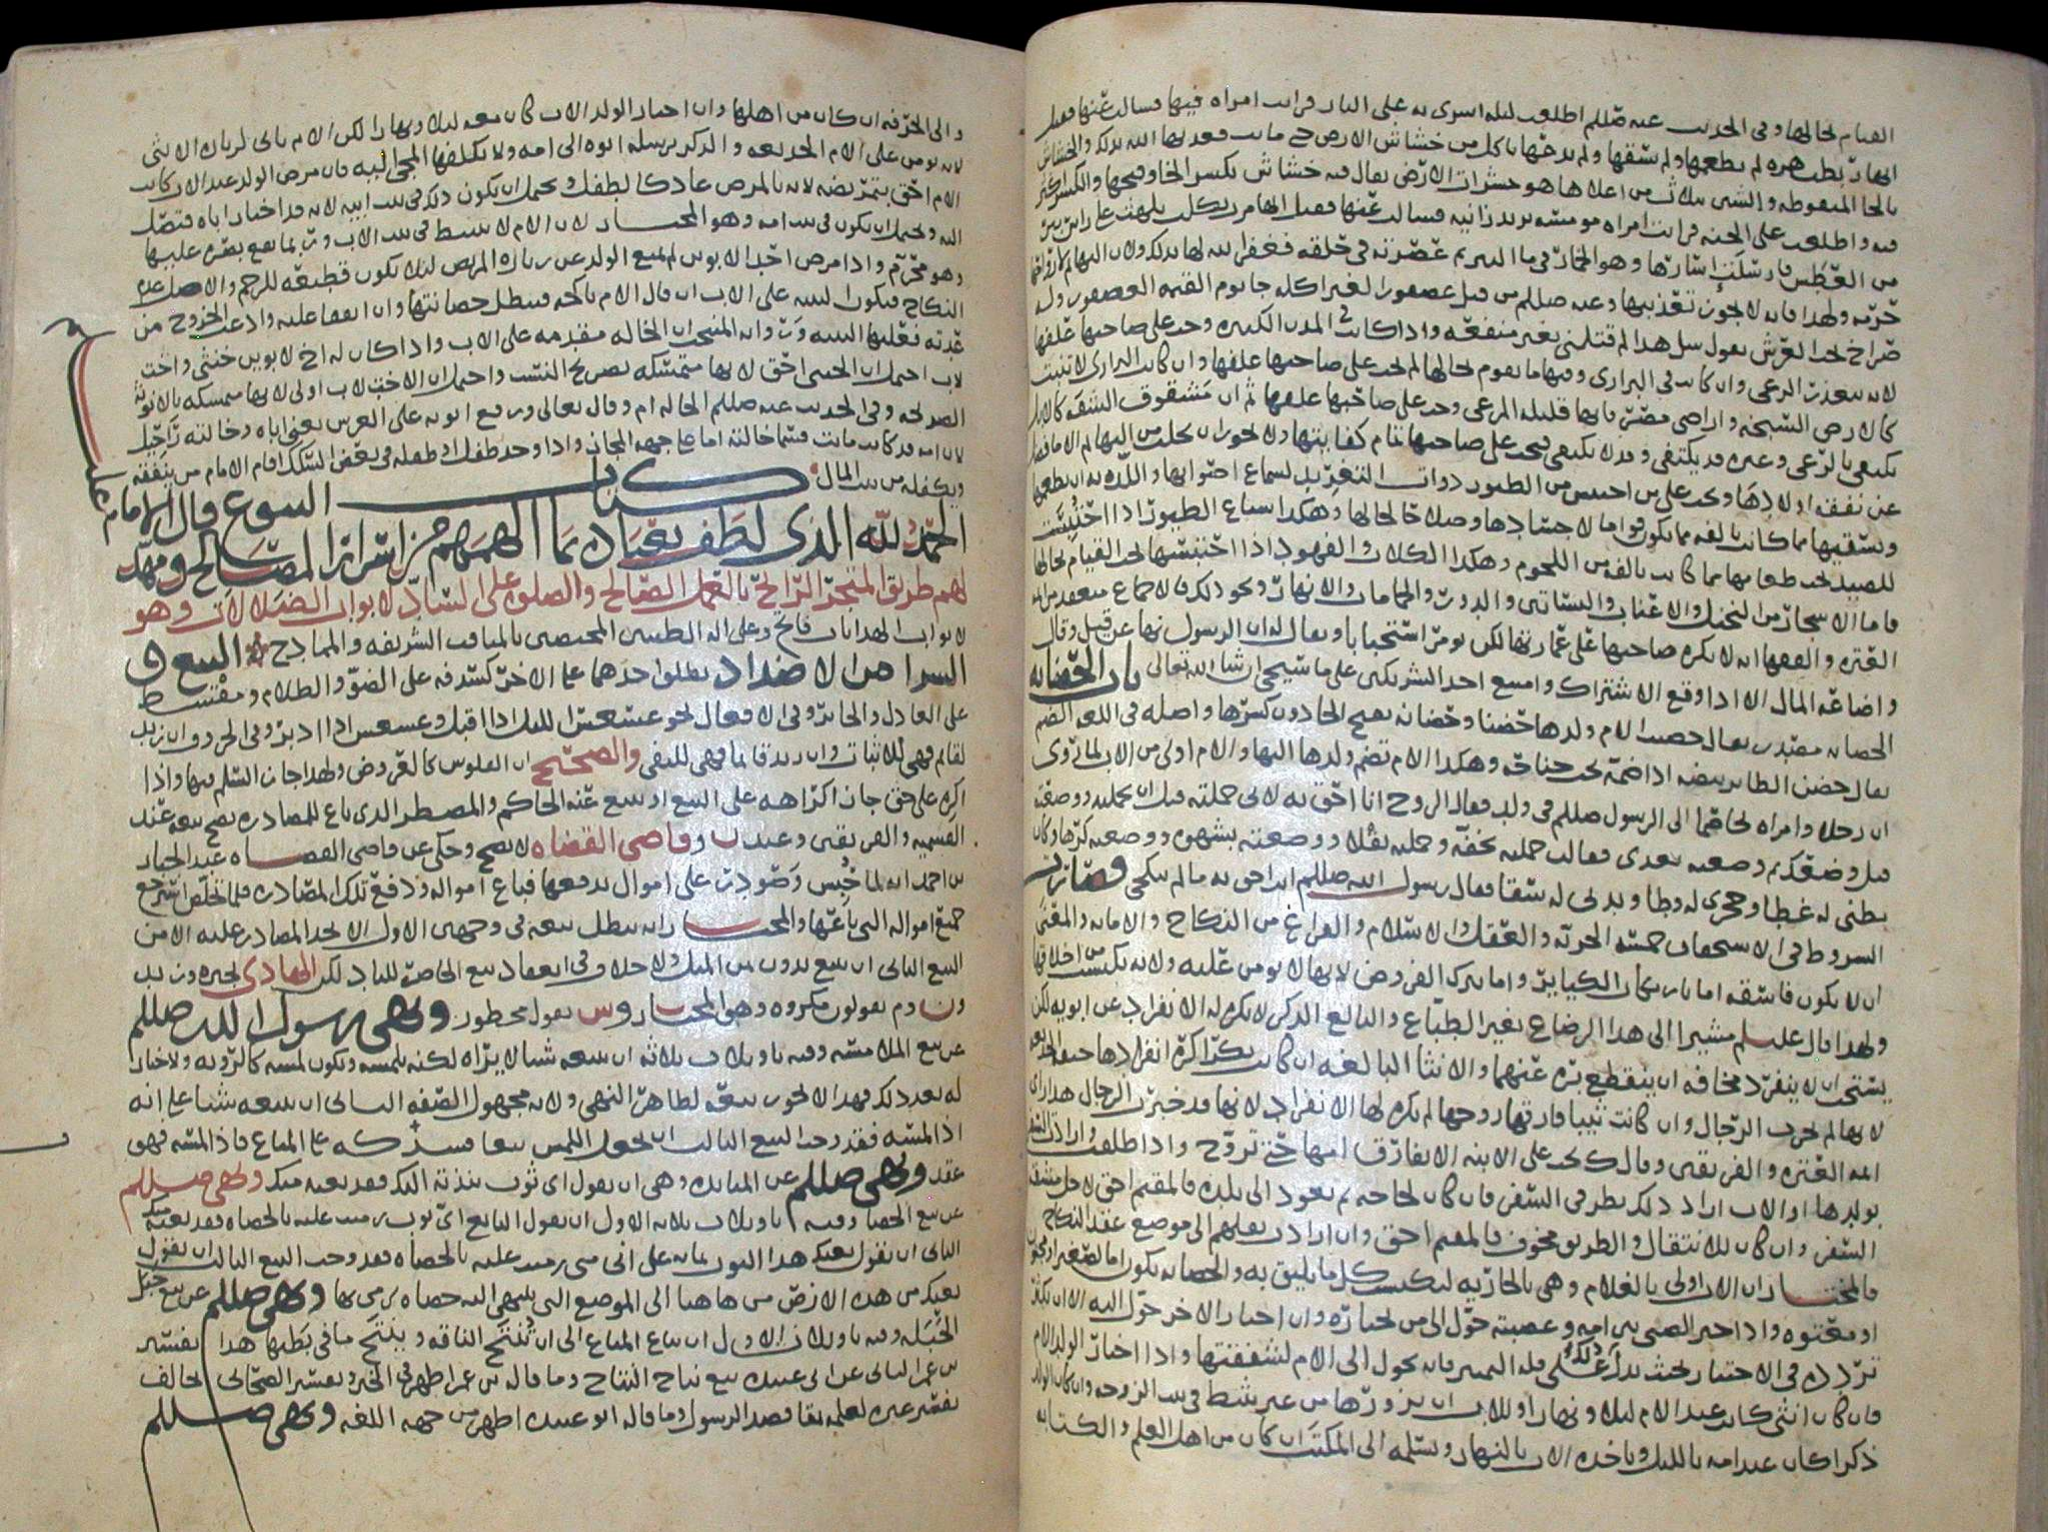 القيام بحالها وفي الحديث عنه صللم اطلعت ليله اسوى به على النار فرايت امراه فيها فسالت عنها فقيل
انها ربطت هره لم تطعمها ولم تسقها ولم تدعها تاكل من خشاش الارض حتى ماتت فعذبها الله بذلك والخشاش
بالخا المنقوطه والشين بثلاث من اعلاها هو حشرات الارض يقال فيه خشاش بكسر الخا وفتحها والكسر اكثر
فيه واطلعت على الجنه فرايت امراه مومسه يريد زانيه فسالت عنها فقيل انها مرت بكلب يلهث على راس بير
من العطش فارسلت ازارها وهو الخمار في ما البير ثم عصرته في حلقه فغفر الله لها بذلك ولان البهايم لارواحها
حرمه ولهذا فانه لا يجوز تعذيبها وعنه صللم من قتل عصفورا لغير اكله جا يوم القيمه العصفور وله
صراخ تحت العرش يقول سل هذا لم قتلني بغير منفعه واذا كانت في المدن الكبيره وجب على صاحبها علفها
لانه يتعذر الرعي وان كانت في البراري وفيها ما يقوم بحالها لم يجب على صاحبها علفها وان كانت البراري لا تنبت
كالارض السبخه واراضي مصر فانها قليله المرعى وجب على صاحبها علفها ثم ان مشقوق الشفه كالابل
يكتفي بالرعي وغيره قد يكتفي وقد لا يكتفي فيجب على صاحبها تمام كفايتها ولا يجوز ان يحلب من البهايم الا ما فضل
عن نفقه اولادها ويجب على من احتبس من الطيور ذوات التغريد لسماع اصواتها والتلذذ به ان يطعمها
ويسقيها مما كانت تالفه مما يكون قواما لاجسادها وصلاحا لحالها وهكذا سباع الطيور اذا احتبست
للصيد يجب طعامها مما كانت تالفه من اللحوم وهكذا الكلاب والفهود اذا احتبسها يجب القيام بحالها
فاما الاشجار من النخيل والاعناب والبساتين والدور والحمامات والانهار ونحو ذلك فالاجماع منعقد من ايمه
العتره والفقها انه لا يكره صاحبها على عمارتها لكن يومر استحبابا ويقال له ان الرسول نها عن قيل وقال
واضاعه المال الا اذا وقع الاشتراك وامتنع احد الشريكين على ما سيجي ان شا الله تعالى باب الحضانه
الحضانه مصدر يقال حضنت الام ولدها حضنا وحضانه بفتح الحا دون كسرها واصله في اللغه الضم
يقال حضن الطاير بيضه اذا ضمه تحت جناحه وهكذا الام تضم ولدها اليها والام اولى من الاب لما روي
ان رجلا وامراه تخاصما الى الرسول صللم في ولد فقال الزوج انا احق به لاني حملته قبل ان تحمليه ووضعته
قبل وضعك ثم وضعته بعدي فقالت حمله بخفه وحملته بثقلا ووضعته بشهوه ووضعته كرها وكان
بطني له غطا وحجري له وطا وثديي له سقا فقال رسول الله صللم انت احق به ما لم تنكحي
الشروط في الاستحقاق خمسه الحريه والعقل والاسلام والفراغ من النكاح والامانه والمعنى
ان لا يكون فاسقه اما بارتكاب الكباير واما بترك الفروض لانها لا يومن عليه ولانه يكتسب من اخلاقها
ولهذا قال عليلم مشيرا الى هذا الرضاع يغير الطباع والبالغ الذكر لا يكره له الانفراد عن ابويه لكن
يستحب ان لا ينفرد مخافه ان ينقطع بره عنهما والانثا البالغه ان كانت بكرا كره انفرادها خيفه الخديعه
لانها لم تجرب الرجال وان كانت ثيبا فارقها زوجها لم يكره لها الانفراد لانها قد خبرت الرجال هذا راي
ايمه العتره والفريقين وقال ك يجب على الابنه الا تفارق امها حتى تزوج واذا طلقت وارادت السفر
بولدها او الاب اراد ذلك نظر في السفر فان كان لحاجه ثم يعود الى بلده فالمقيم احق لاجل مشقه
السفر وان كان للانتقال والطريق مخوف فالمقيم احق وان ارادت نقلهم الى موضع عقد النكاح
فالمختار ان الاب اولى بالغلام وهي بالجاريه ليكتسب كل ما يليق به والحضانه تكون اما لصغير او مجنون
او معتوه واذا خير الصبي بين امه وعصبته حول الى من يختاره وان اختار الاخر حول اليه الا ان يكثر
تردده في الاختيار بحيث يدل ذلك على قله التمييز فانه يحول الى الام لشفقتها واذا اختار الولد الام
فان كان انثى كانت عند الام ليلا ونهارا وللاب ان يزورها من غير بسط في بيت الزوجه وان كان الولد
ذكرا كان عند امه بالليل وياخذه الاب بالنهار ويسلمه الى المكتب ان كان من اهل العلم والكتابه
والى الحرفه ان كان من اهلها وان اختار الولد الاب كان معه ليلا ونهارا لكن الام تاتي لزياره الانثى
لانه يومن على الام الخديعه والذكر يرسله ابوه الى امه ولا يكلفها المجي اليه فان مرض الولد عند الاب كانت
الام احق بتمريضه لانه بالمرض عاد كالطفل ويحتمل ان يكون ذلك في بيت ابيه لانه قد اختار اباه فتصل
اليه ويحتمل ان يكون في بيت امه وهو المختار لان الام لا تبسط في بيت الاب وربما يقع بصره عليها
وهو محرم واذا مرض احد الابوين لم يمنع الولد عن زياره المريض ليلا يكون قطيعه للرحم والاصل عدم
النكاح فيكون البينه على الاب ان قال الام ناكحه فيبطل حضانتها وان اتفقا عليه وادعت الخروج من
عدته فعليها البينه وانه المنتخب ان الخاله مقدمه على الاب واذا كان له اخ لابوين خنثى واخت
لاب احتمل ان الخنثى احق لانها متمسكه بصريح النسب واحتمل ان الاخت لاب اولى لانها متمسكه بالانوثه
الصريحه وفي الحديث عنه صللم الخاله ام وقال تعالى ورفع ابويه على العرش يعني اباه وخالته راحيل
لان امه قد كانت ماتت فسما خالته اما على جهه المجاز واذا وجد طفل او طفله في بعض السكك اقام الامام من ينفقه
ويكفله من بيت المال
كتاب البيوع قال الامام عليلم
الحمد لله الذي لطف بعباده بما الهمهم من اسرار المصالح ومهد
لهم طريق المتجر الرابح بالعمل الصالح والصلوه على الساد لابواب الضلالات وهو
لابواب الهدايات فاتح وعلى اله الطيبين المختصين بالمناقب الشريفه والممادح البيع و
الشرا من الاضداد يطلق احدهما على الاخر كسدفه على الضو والظلام ومقسط
على العادل والجاير وفي الافعال نحو عسعس الليل اذا اقبل وعسعس اذا ادبر وفي الحروف ان زيد
لقايم فهي للاثبات وان زيد قايما فهي للنفي والصحيح ان الفلوس كالعروض ولهذا جاز السلم فيها واذا
اكره على حق جاز اكراهه على البيع او يبيع عنه الحاكم والمضطر الذي باع للمصادره يصح بيعه عند
القسميه والفريقين وعند ب وقاضي القضاه لا يصح وحكي عن قاضي القضاه عبد الجبار
بن احمد انه لما حبس وصودر على اموال يدفعها فباع امواله ودفع تلك المصادره فلما تخلص استرجع
جميع امواله التي باعها والمختار انه يبطل بيعه في وجهين الاول الا يجد المصادر عليه الا من
البيع الثاني ان يبيع بدون ثمن المثل ولا خلاف في انعقاد بيع الحاضر للباد لكن الهادي لخبره وزيد
ون وم يقولون مكروه وهو المختار وس يقول محظور ونهى رسول الله صللم
عن بيع الملامسه وفيه تاويلات ثلاثه ان يبيعه شيا لا يراه لكنه يلمسه ويكون لمسه كالرويه ولا خيار
له بعد ذلك فهذا لا يجوز بيعه لظاهر النهي ولانه مجهول الصفه الثاني ان يبيعه شيا على انه
اذا لمسه فقد وجب البيع الثالث ان يجعل اللمس بيعا فيدركه على المتاع فاذا لمسه فهو
عقد ونهى صللم عن المنابذه وهي ان يقول اي ثوب نبذته اليك فقد بعته منك ونهى صللم
عن بيع الحصا وفيه تاويلات ثلاثه الاول ان يقول البايع اي ثوب رميت عليه بالحصاه فقد بعته منك
الثاني ان يقول بعتك هذا الثوب بمايه على اني متى رميت عليه بالحصاه فقد وجب البيع الثالث ان يقول
بعتك من هذه الارض من هاهنا الى الموضع التي ينتهي اليه حصاه يرمى بها ونهى صللم عن بيع حبل
الحبله وفيه تاويلان الاول ان يباع المتاع الى ان تنتج الناقه وينتج ما في بطنها هذا تفسير
بن عمر الثاني عن ابي عبيده بيع نتاج النتاج وما قاله بن عمر اظهر في الخبر وتفسير الصحابي يخالف
تفسير غيره لعلمه بمقاصد الرسول وما قاله ابو عبيده اظهر من جهه اللغه ونهى صللم